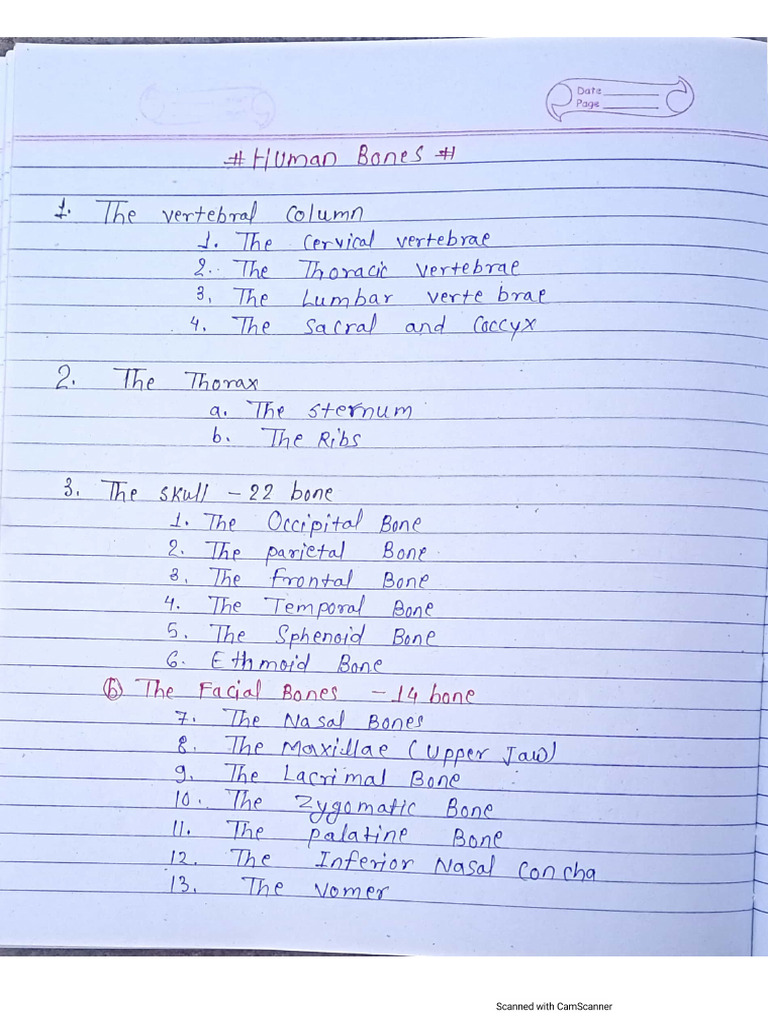 Date
Page
# Human Bones #
1. The vertebral column
1. The Cervical vertebrae
2. The Thoracic vertebrae
3. The Lumbar vertebrae
4. The Sacral and Coccyx
2. The Thorax
a. The sternum
b. The Ribs
3. The skull - 22 bone
1. The Occipital Bone
2. The parietal Bone
3. The frontal Bone
4. The Temporal Bone
5. The Sphenoid Bone
6. Ethmoid Bone
(b) The Facial Bones - 14 bone
7. The Nasal Bones
8. The Maxillae (Upper Jaw)
9. The Lacrimal Bone
10. The Zygomatic Bone
11. The palatine Bone
12. The Inferior Nasal Concha
13. The Vomer
Scanned with CamScanner